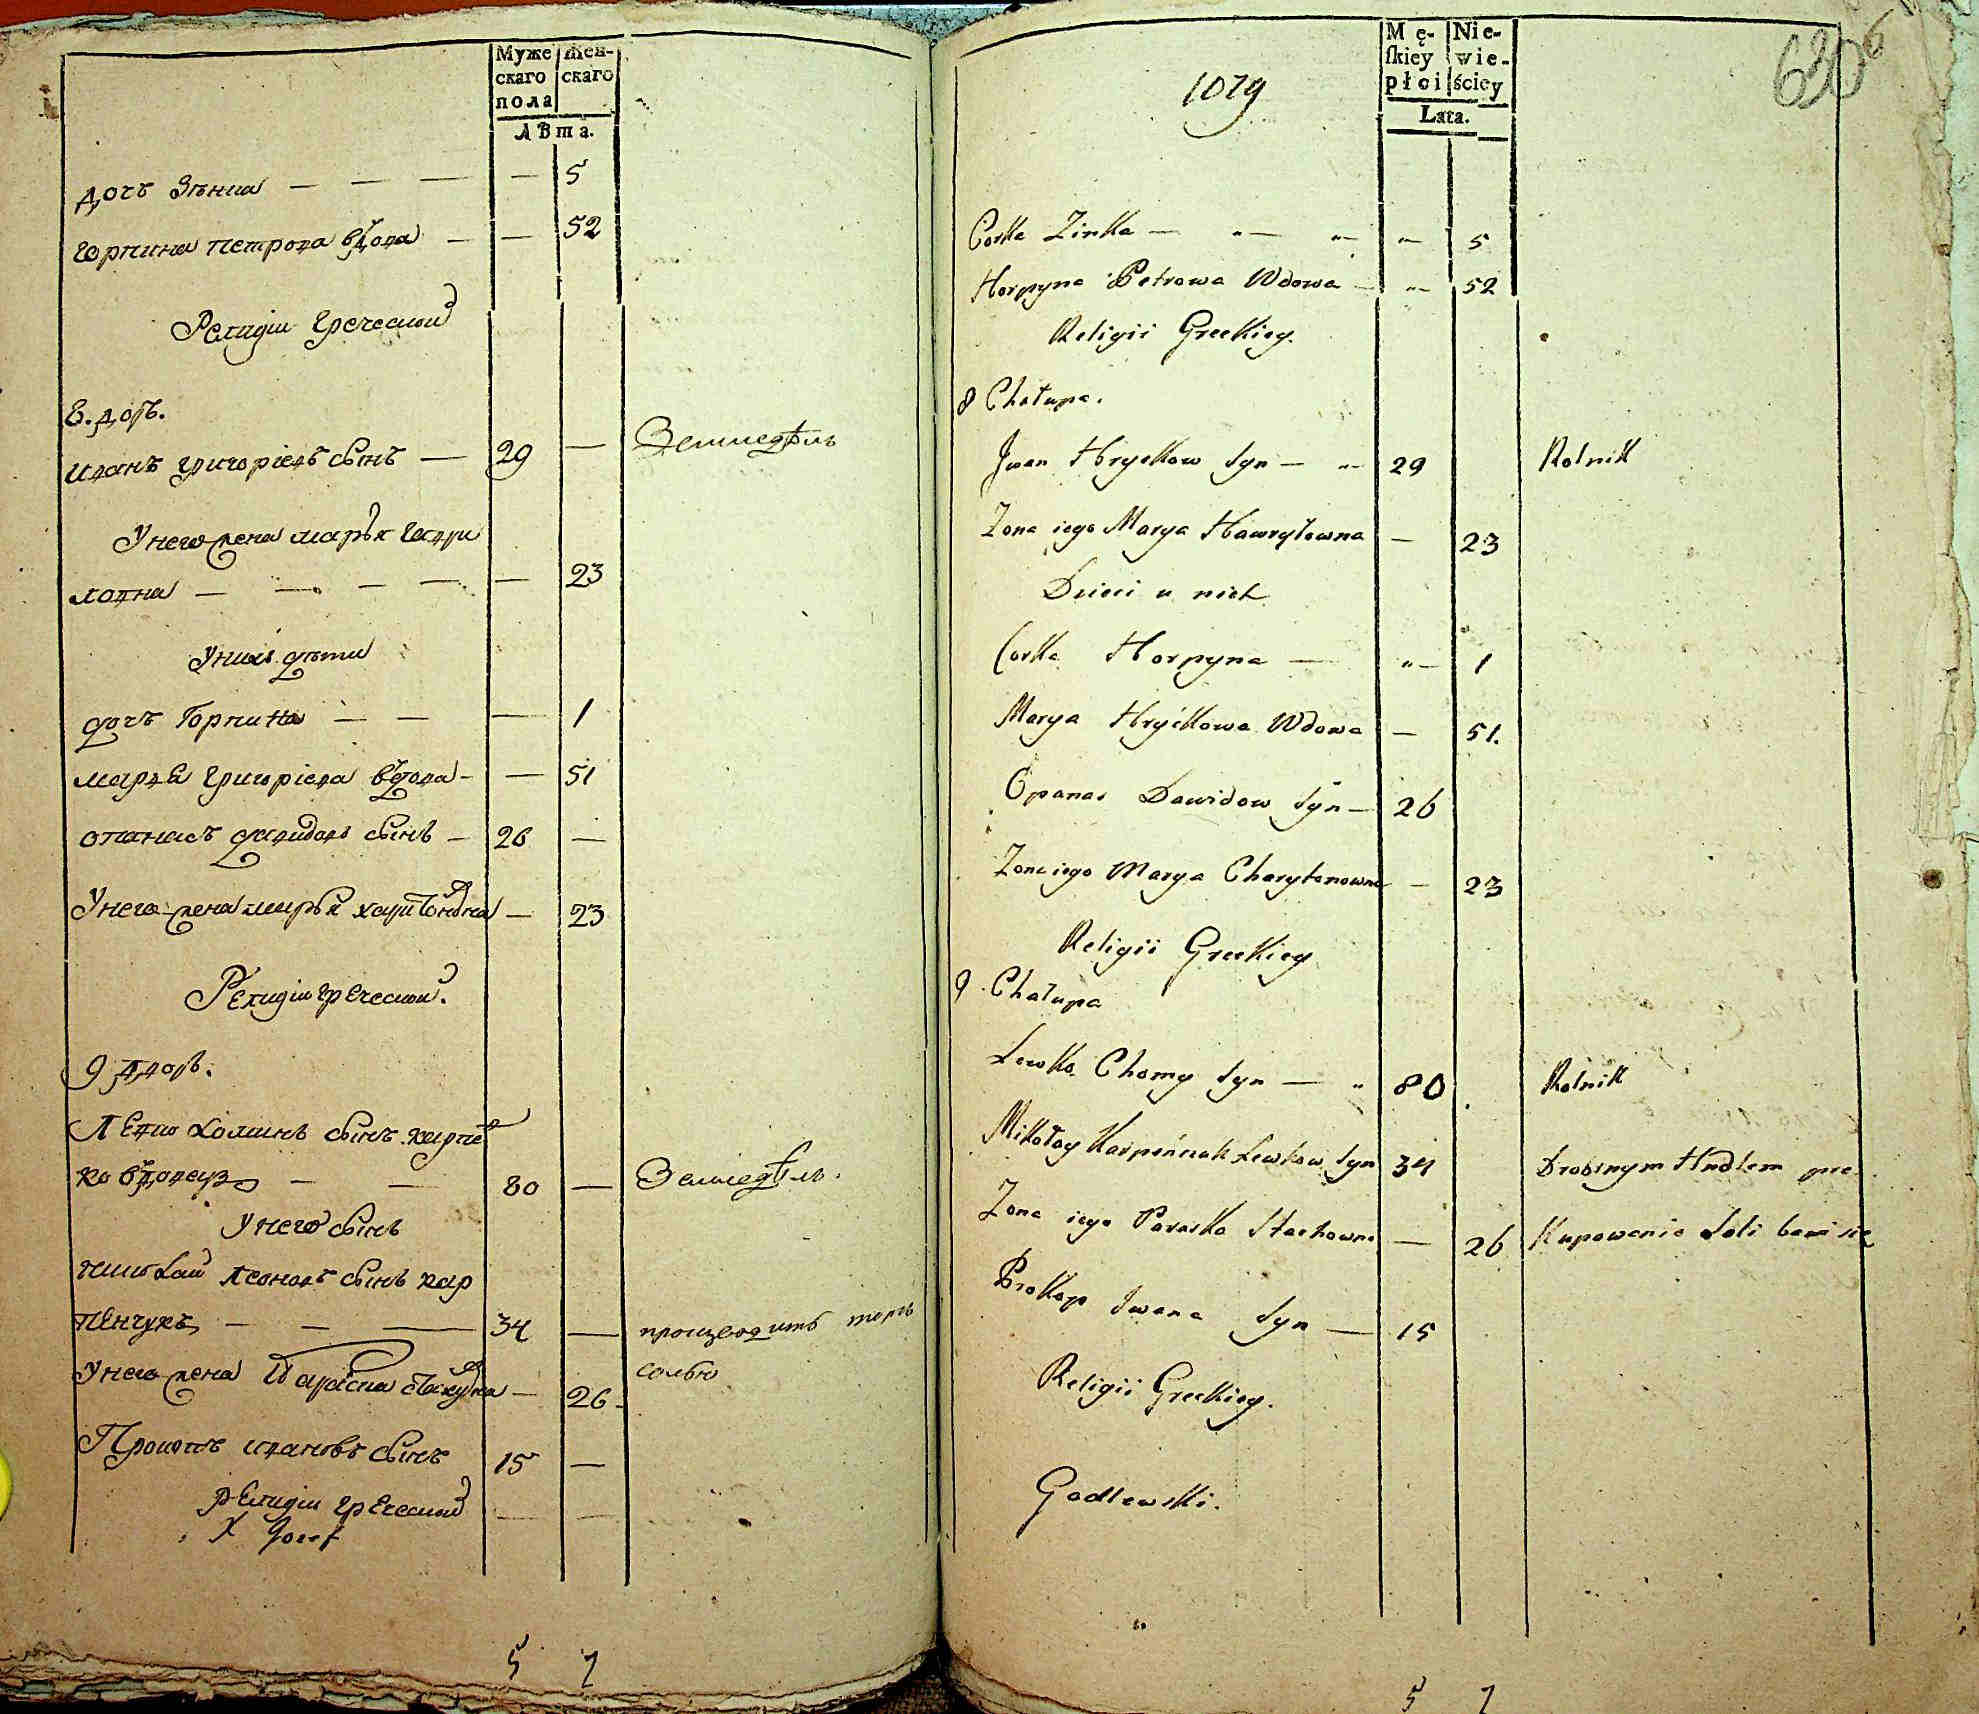 Муже Жен-
скаго скаго
пола
Лѣта.
дочъ Зѣнка — — — — 5
Горпина петрова вдова — — 52
Религіи греческой
8. дворъ.
иванъ григоріевъ сынъ — 29 — Земледѣль
У него жена марья гаври
ловна — — — — — 23
У нихъ дѣти
дочъ Горпина — — — 1
марья григоріева вдова — — 51
опанасъ давидовъ сынъ — 26 —
У него жена марья харитоновна — 23
Религіи греческой.
9 дворъ.
Левко хоминъ сынъ карпен
ко вдовецъ — — 80 — Земледѣль.
У него сынъ
николай леоновъ сынъ кар
пенчукъ — — — 34 — производитъ торгъ
У него жена Параска стахувна — 26 солью
Прокопъ ивановъ сынъ 15 —
религіи греческой
5 7
1079
630
6
Mę- Nie-
skiey wie-
płci ściey
Lata.
Corka Zinka — — 5
Horpyna Petrowa Wdowa — 52
Religii Greckiey.
8 Chałupa.
Jwan Hryckow Syn — 29 Rolnik
Zona iego Marya Hawryłowna — 23
Dzieci u nich
Corka Horpyna — — 1
Marya Hryćkowa Wdowa — 51.
Opanas Dawidow Syn — 26
Zona iego Marya Charytonowna — 23
Religii Greckiey
9 Chałupa
Lewko Chomy Syn — 80 Rolnik
Mikołay Karpenczuk Lewkow Syn 34 Drobnym Hndlem prze
Zona iego Paraska Stachowna — 26 Kupowanie Soli bawi się
Prokop Iwana Syn — 15
Religii Greckiey.
Godlewski.
5 7